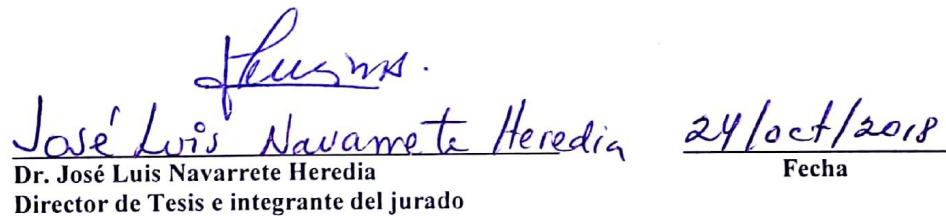 José Luis Navarrete Heredia 24/oct/2018
Dr. José Luis Navarrete Heredia Fecha
Director de Tesis e integrante del jurado